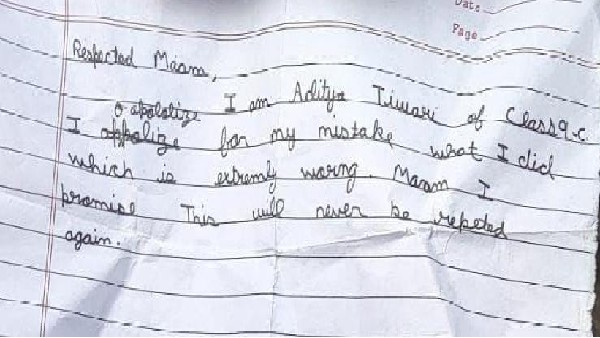 Date
Page
Respected Maam,
I am Aditya Tiwari of Class 9-C
apolotize
I appolize for my mistake what I did
which is extremly warng. Maam I
promise This will never be repeted
again.